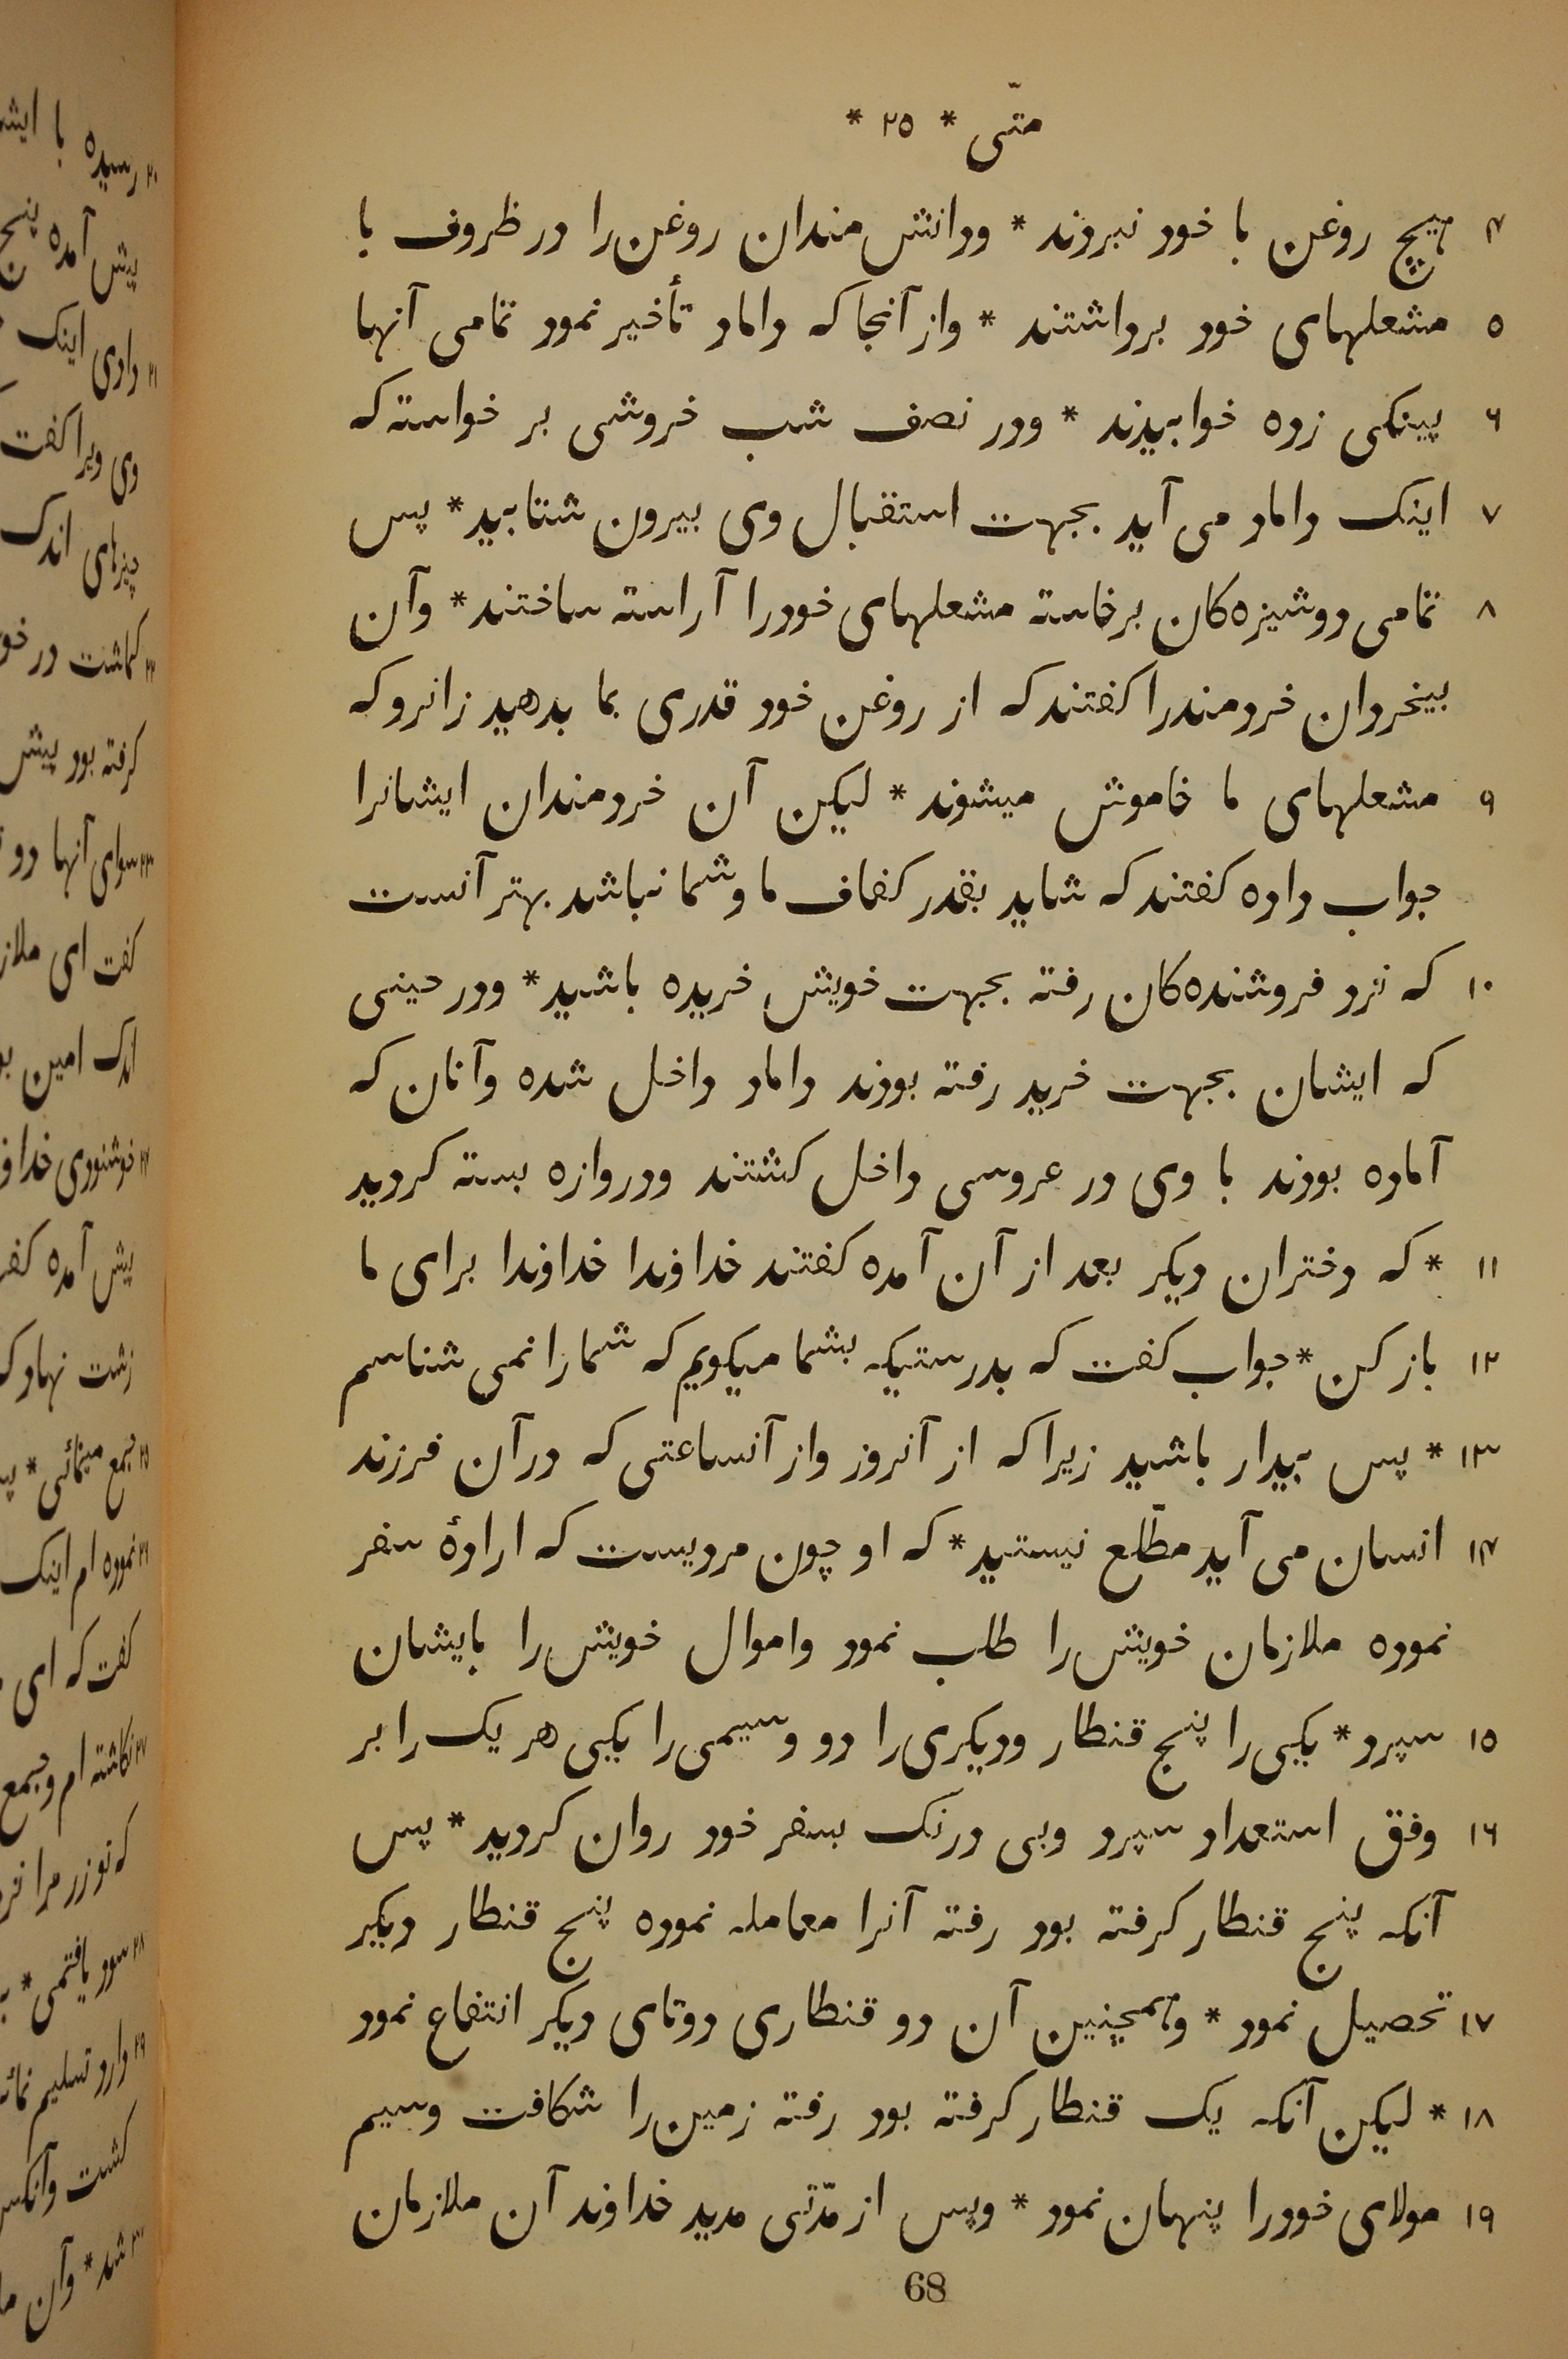 متّی * ۲۵ *
۴ هیچ روغن با خود نبردند * ودانش مندان روغن را در ظروف با
۵ مشعلهای خود برداشتند * واز آنجا که داماد تأخیر نمود تمامی آنها
۶ پینکی زده خوابیدند * ودر نصف شب خروشی بر خواسته که
۷ اینک داماد می آید بجهت استقبال وی بیرون شتابید * پس
۸ تمامی دوشیزه کان برخاسته مشعلهای خودرا آراسته ساختند * وآن
بیخردان خردمندرا کفتند که از روغن خود قدری بما بدهید زانرو که
۹ مشعلهای ما خاموش میشوند * لیکن آن خردمندان ایشانرا
جواب داده کفتند که شاید بقدر کفاف ما وشما نباشد بهتر آنست
۱۰ که نزد فروشنده کان رفته بجهت خویش خریده باشید * ودر حینی
که ایشان بجهت خرید رفته بودند داماد داخل شده وآنان که
آماده بودند با وی در عروسی داخل کشتند ودروازه بسته کردید
۱۱ * که دختران دیکر بعد از آن آمده کفتند خداوندا خداوندا برای ما
۱۲ باز کن * جواب کفت که بدرستیکه بشما میکویم که شمارا نمی شناسم
۱۳ * پس بیدار باشید زیرا که از آنروز واز آنساعتی که در آن فرزند
۱۴ انسان می آید مطّلع نیستید * که او چون مردیست که ارادهٔ سفر
نموده ملازمان خویش را طلب نمود واموال خویش را بایشان
۱۵ سپرد * یکیی را پنج قنطار ودیکری را دو وسیمی را یکیی هر یک را بر
۱۶ وفق استعداد سپرد وبی درنک بسفر خود روان کردید * پس
آنکه پنج قنطار کرفته بود رفته آنرا معامله نموده پنج قنطار دیکر
۱۷ تحصیل نمود * وهمچنین آن دو قنطاری دوتای دیکر انتفاع نمود
۱۸ * لیکن آنکه یک قنطار کرفته بود رفته زمین را شکافت وسیم
۱۹ مولای خوورا پنهان نمود * وپس از مدّتی مدید خداوند آن ملازمان
68
۲۰ رسیده با
پیش آمده پنج
۲۱ دادی اینک
وی ویرا کفت
چیزهای اندک
کماشت در
کرفته بود پیش
۲۳ سوای آنها دو
کفت ای
اندک امین
۲۴ خوشنودی خدا
پیش آمده
زشت نهاد
۲۵ جمع مینمائی *
۲۶ نموده ام اینک
کفت که ای
۲۷ نکاشته ام وجمع
که تو زر مرا
۲۸ سود یافتمی *
۲۹ دارد تسلیم
کشت
شد * وآن